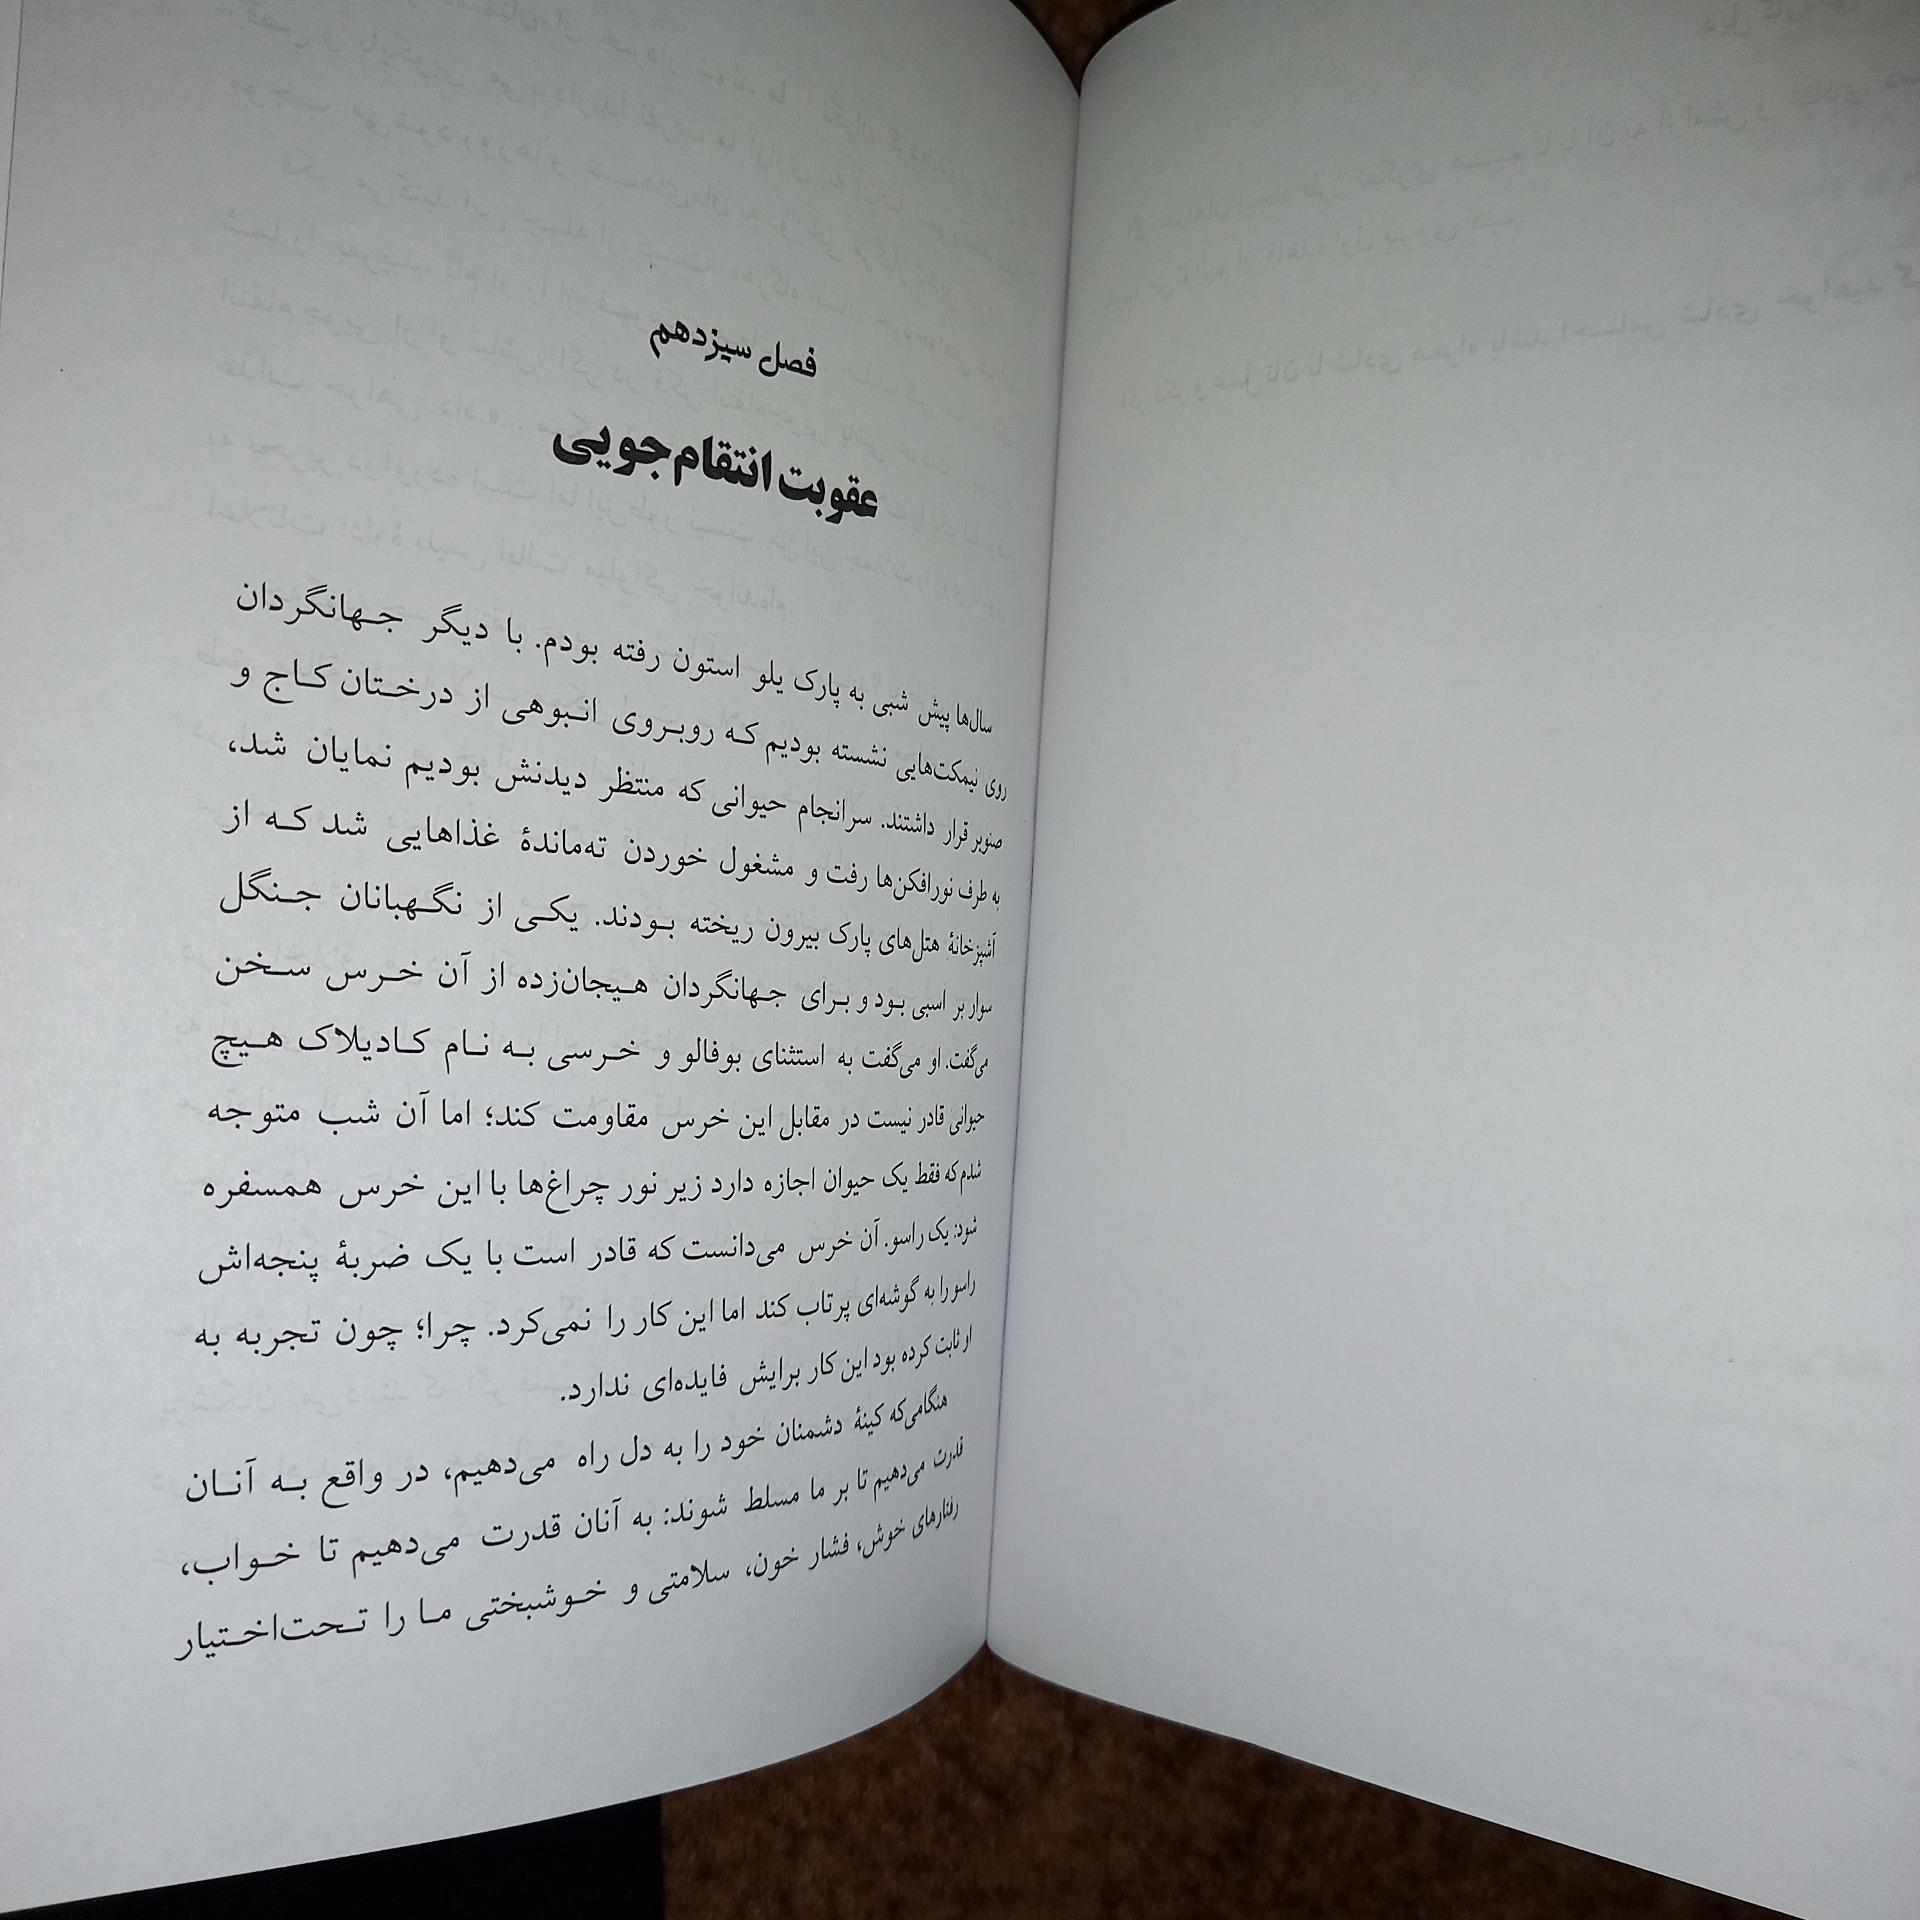 فصل سیزدهم
عقوبت انتقام‌جویی
سال‌ها پیش شبی به پارک یلو استون رفته بودم. با دیگر جهانگردان
روی نیمکت‌هایی نشسته بودیم که روبروی انبوهی از درختان کاج و
صنوبر قرار داشتند. سرانجام حیوانی که منتظر دیدنش بودیم نمایان شد،
به طرف نورافکن‌ها رفت و مشغول خوردن ته‌ماندۀ غذاهایی شد که از
آشپزخانۀ هتل‌های پارک بیرون ریخته بودند. یکی از نگهبانان جنگل
سوار بر اسبی بود و برای جهانگردان هیجان‌زده از آن خرس سخن
می‌گفت. او می‌گفت به استثنای بوفالو و خرسی به نام کادیلاک هیچ
حیوانی قادر نیست در مقابل این خرس مقاومت کند؛ اما آن شب متوجه
شدم که فقط یک حیوان اجازه دارد زیر نور چراغ‌ها با این خرس همسفره
شود: یک راسو. آن خرس می‌دانست که قادر است با یک ضربۀ پنجه‌اش
راسو را به گوشه‌ای پرتاب کند اما این کار را نمی‌کرد. چرا؛ چون تجربه به
او ثابت کرده بود این کار برایش فایده‌ای ندارد.
هنگامی‌که کینۀ دشمنان خود را به دل راه می‌دهیم، در واقع به آنان
قدرت می‌دهیم تا بر ما مسلط شوند: به آنان قدرت می‌دهیم تا خواب،
رفتارهای خوش، فشار خون، سلامتی و خوشبختی ما را تحت‌اختیار